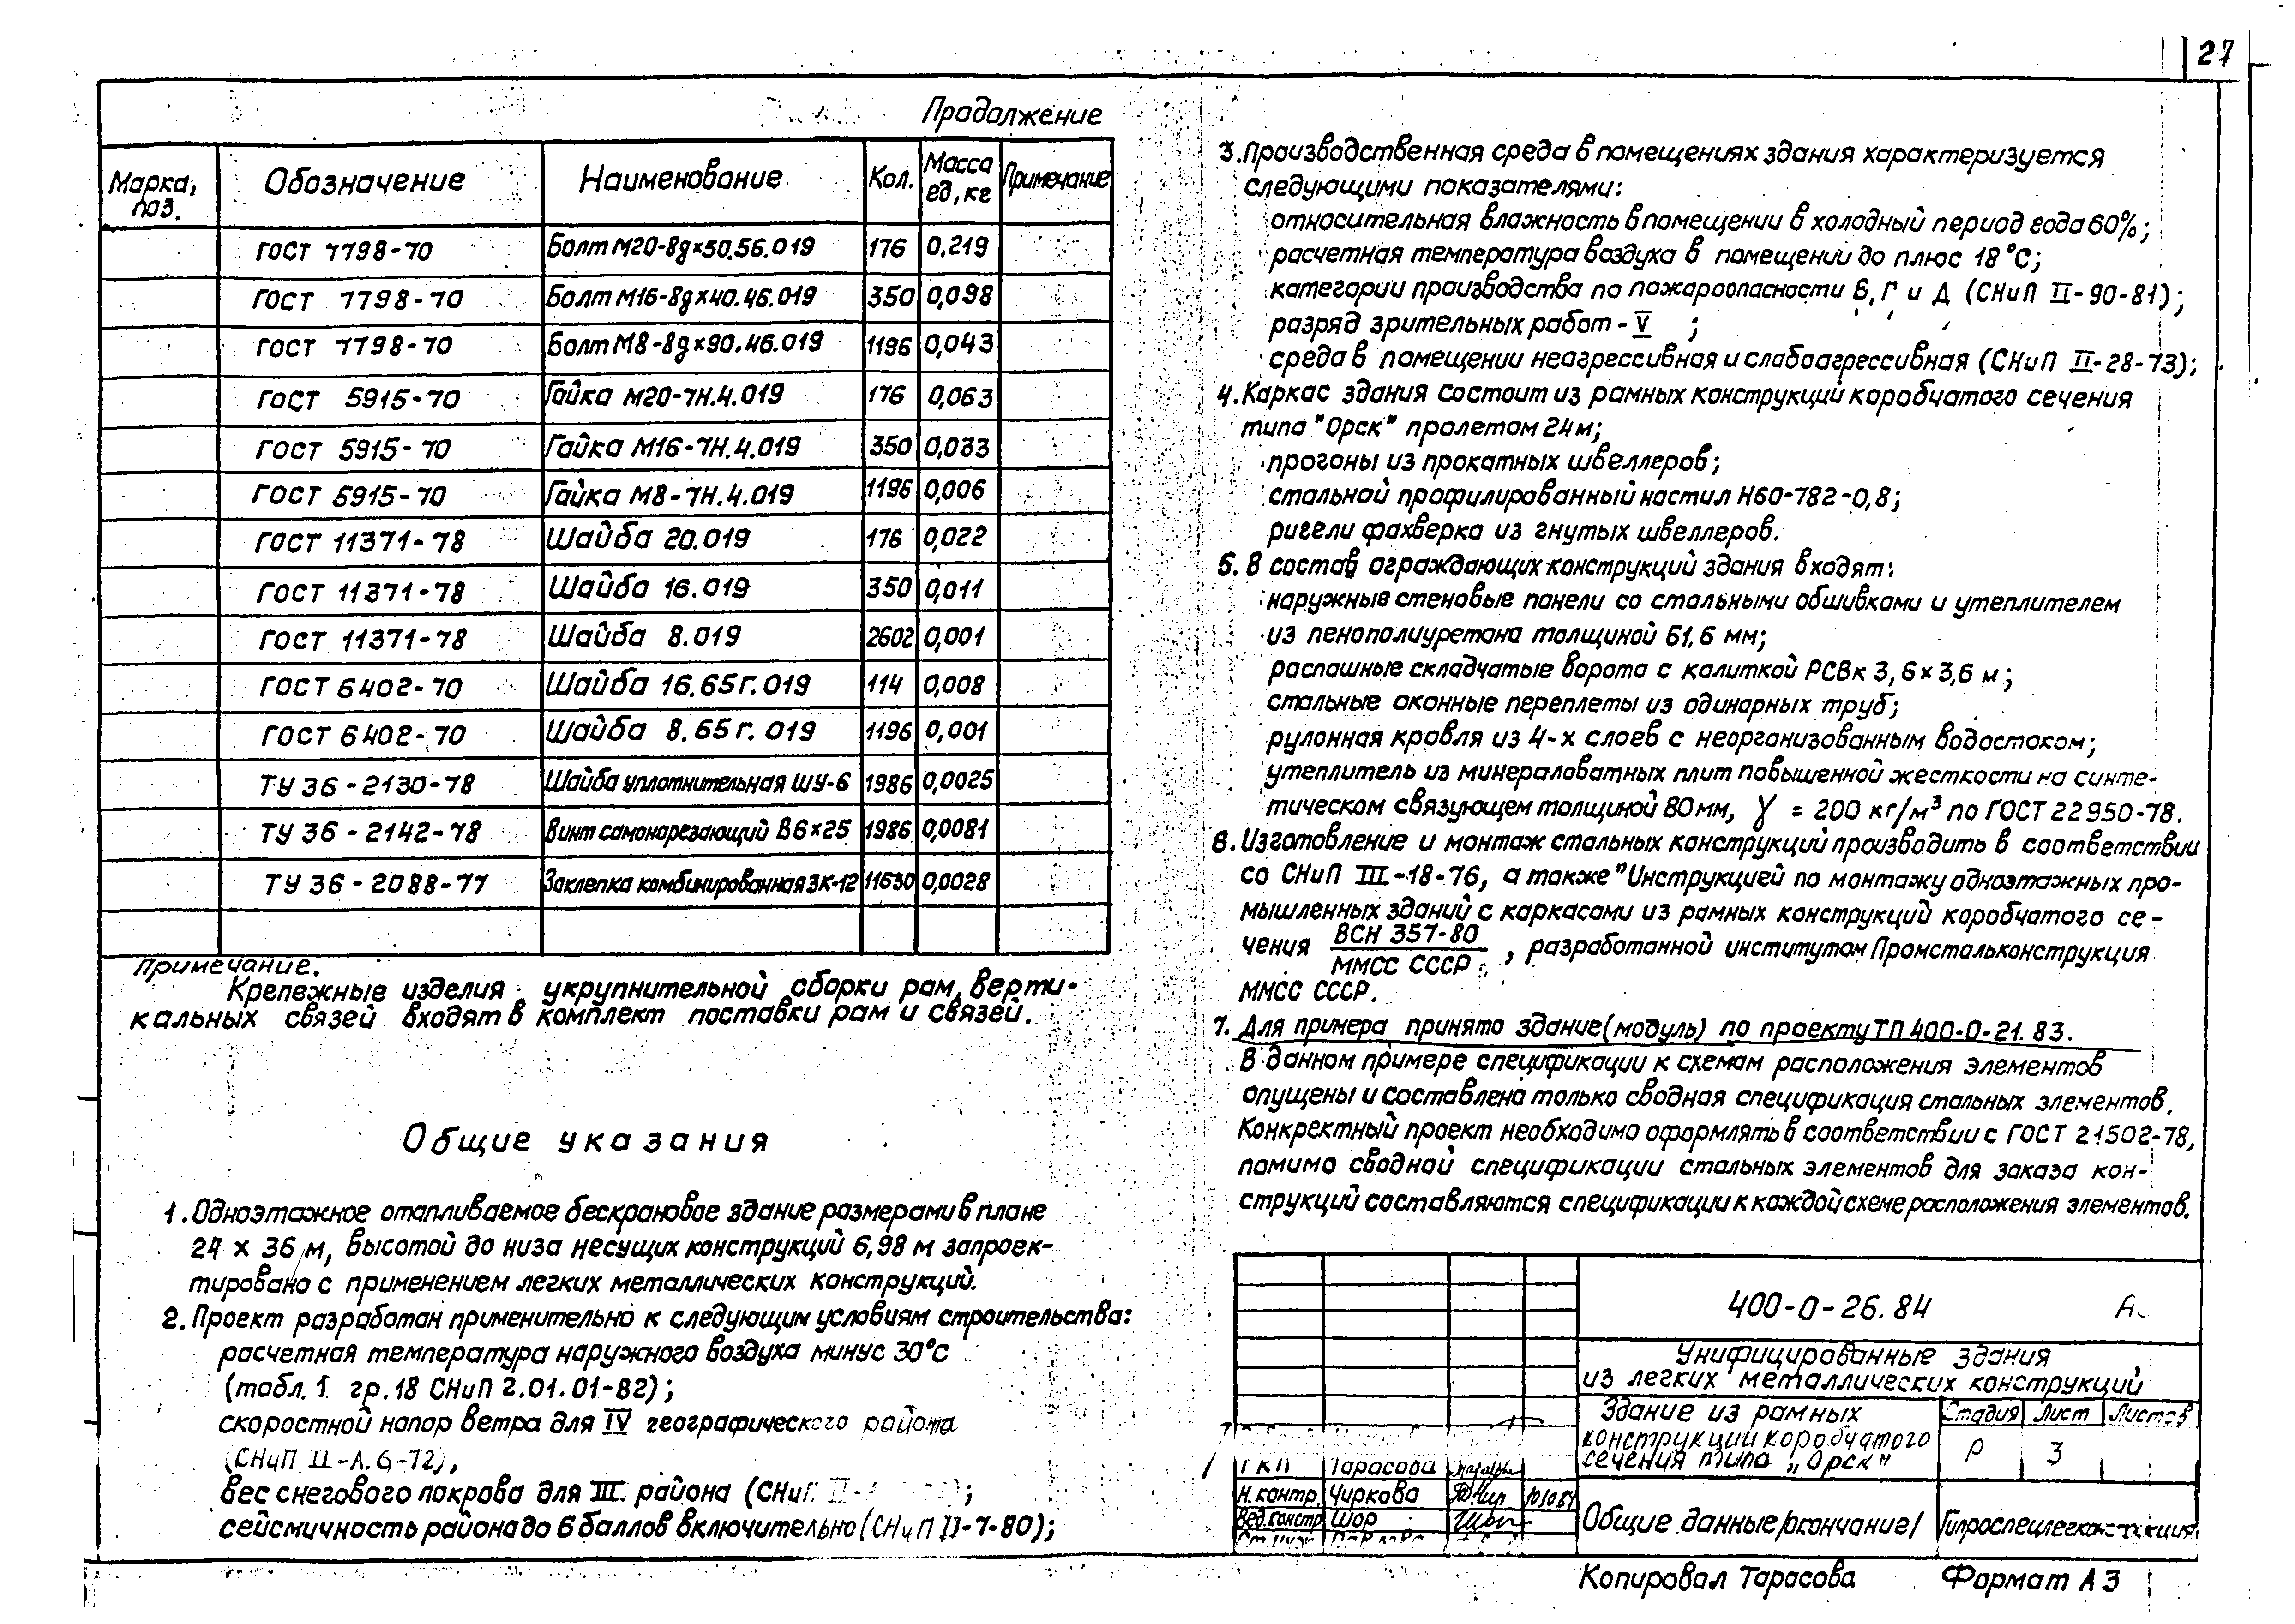 27
Продолжение
Марка, поз. Обозначение Наименование Кол. Масса ед, кг Примечание
ГОСТ 7798-70 Болт М20-8g×50.56.019 176 0,219
ГОСТ 7798-70 Болт М16-8g×40.46.019 350 0,098
ГОСТ 7798-70 Болт М8-8g×90.46.019 1196 0,043
ГОСТ 5915-70 Гайка М20-7Н.4.019 176 0,063
ГОСТ 5915-70 Гайка М16-7Н.4.019 350 0,033
ГОСТ 5915-70 Гайка М8-7Н.4.019 1196 0,006
ГОСТ 11371-78 Шайба 20.019 176 0,022
ГОСТ 11371-78 Шайба 16.019 350 0,011
ГОСТ 11371-78 Шайба 8.019 2602 0,001
ГОСТ 6402-70 Шайба 16.65Г.019 114 0,008
ГОСТ 6402-70 Шайба 8.65Г.019 1196 0,001
ТУ 36-2130-78 Шайба уплотнительная ШУ-6 1986 0,0025
ТУ 36-2142-78 Винт самонарезающий В6×25 1986 0,0081
ТУ 36-2088-77 Заклепка комбинированная ЗК-12 11630 0,0028
Примечание.
Крепежные изделия укрупнительной сборки рам, верти-
кальных связей входят в комплект поставки рам и связей.
Общие указания
1. Одноэтажное отапливаемое бескрановое здание размерами в плане
24 × 36 м, высотой до низа несущих конструкций 6,98 м запроек-
тировано с применением легких металлических конструкций.
2. Проект разработан применительно к следующим условиям строительства:
расчетная температура наружного воздуха минус 30°С
(табл. 1 гр. 18 СНиП 2.01.01-82);
скоростной напор ветра для IV географического района
(СНиП II-А.6-72),
вес снегового покрова для III района (СНиП II-
сейсмичность района до 6 баллов включительно (СНиП II-7-80);
3. Производственная среда в помещениях здания характеризуется
следующими показателями:
относительная влажность в помещении в холодный период года 60%;
расчетная температура воздуха в помещении до плюс 18°С;
категории производства по пожароопасности В, Г и Д (СНиП II-90-81);
разряд зрительных работ - V ;
среда в помещении неагрессивная и слабоагрессивная (СНиП II-28-73);
4. Каркас здания состоит из рамных конструкций коробчатого сечения
типа "Орск" пролетом 24 м;
прогоны из прокатных швеллеров;
стальной профилированный настил Н60-782-0,8;
ригели фахверка из гнутых швеллеров.
5. В состав ограждающих конструкций здания входят:
наружные стеновые панели со стальными обшивками и утеплителем
из пенополиуретана толщиной 61,6 мм;
распашные складчатые ворота с калиткой РСВк 3,6×3,6 м;
стальные оконные переплеты из одинарных труб;
рулонная кровля из 4-х слоев с неорганизованным водостоком;
утеплитель из минераловатных плит повышенной жесткости на синте-
тическом связующем толщиной 80 мм, γ = 200 кг/м³ по ГОСТ 22950-78.
6. Изготовление и монтаж стальных конструкций производить в соответствии
со СНиП III-18-76, а также "Инструкцией по монтажу одноэтажных про-
мышленных зданий с каркасами из рамных конструкций коробчатого се-
чения ВСН 357-80 / ММСС СССР , разработанной институтом Промстальконструкция
ММСС СССР.
7. Для примера принято здание (модуль) по проекту ТП 400-0-21.83.
В данном примере спецификации к схемам расположения элементов
опущены и составлена только сводная спецификация стальных элементов.
Конкректный проект необходимо оформлять в соответствии с ГОСТ 21502-78,
помимо сводной спецификации стальных элементов для заказа кон-
струкций составляются спецификации к каждой схеме расположения элементов.
400-0-26.84 А
Унифицированные здания
из легких металлических конструкций
Здание из рамных
конструкций коробчатого
сечения типа „Орск"
Стадия Лист Листов
Р 3
ГКП Тарасова
Н. контр. Чиркова
Вед. констр Шор
Общие данные /окончание/
Гипроспецлегконструкция
Копировал Тарасова Формат А3